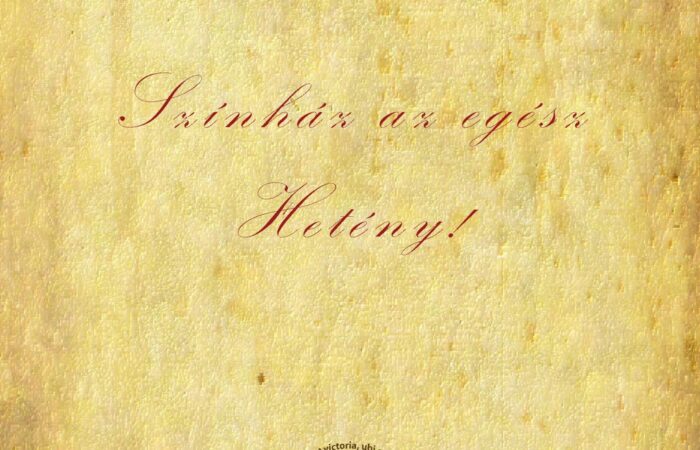 Színház az egész
Hetény!
victoria, ubi